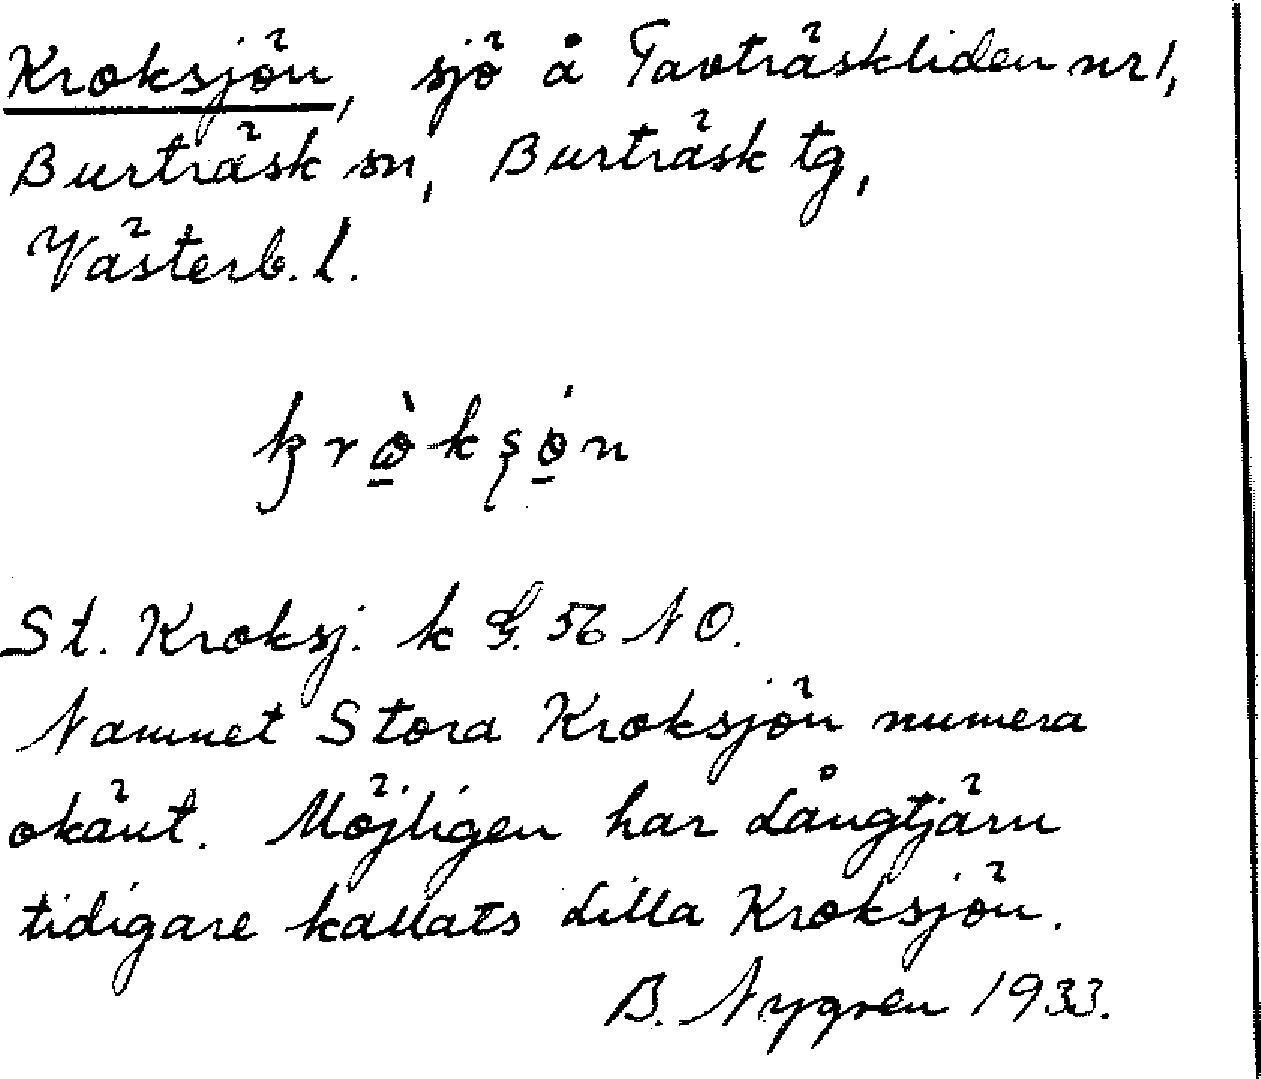 Kroksjön, sjö å Tavträskliden nr 1,
Burträsk sn, Burträsk tg,
Västerb. l.
St. Kroksj. k G. 56 NO.
Namnet Stora Kroksjön numera
okänt. Möjligen har Långtjärn
tidigare kallats Lilla Kroksjön.
B. Nygren 1933.